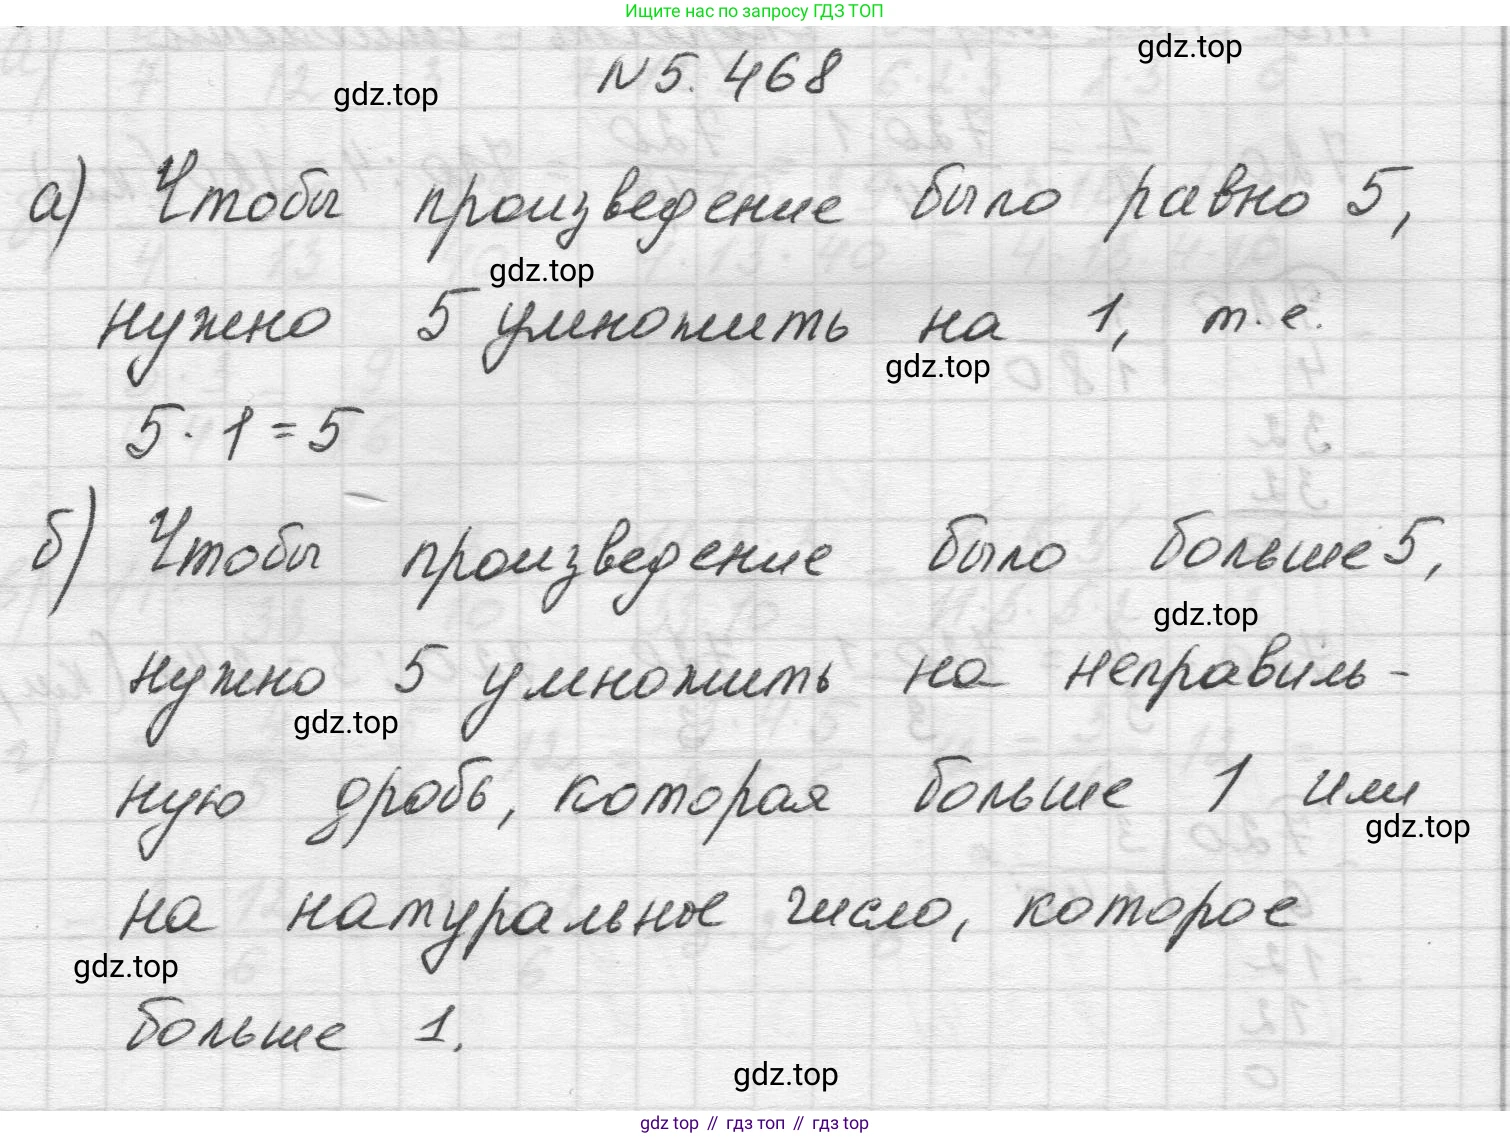 Ищите нас по запросу ГДЗ ТОП
gdz.top
N 5. 468
gdz.top
а) Чтобы произведение было равно 5,
gdz.top
нужно 5 умножить на 1, т. е.
gdz.top
5 · 1 = 5
б) Чтобы произведение было больше 5,
gdz.top
нужно 5 умножить на неправиль-
gdz.top
ную дробь, которая больше 1 или
gdz.top
на натуральное число, которое
gdz.top
больше 1.
gdz.top
gdz top // гдз топ // gdz top